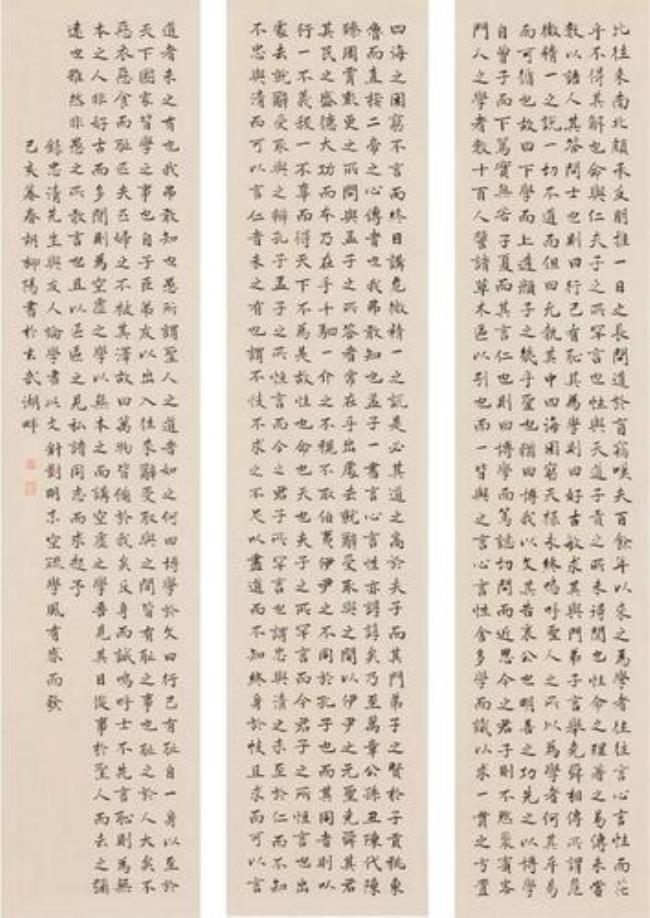 比往來南北頗承友朋推一日之長問道於盲竊嘆夫百餘年以來之為學者往往言心言性而茫
乎不得其解也命與仁夫子之所罕言也性與天道子貢之所未得聞也性命之理著之易傳未嘗
數以語人其答問士也則曰行己有恥其為學則曰好古敏求其與門弟子言舉堯舜相傳所謂危
微精一之說一切不道而但曰允執其中四海困窮天祿永終嗚呼聖人之所以為學者何其平易
而可循也故曰下學而上達顏子之幾乎聖也猶曰博我以文其告哀公也明善之功先之以博學
自曾子而下篤實無若子夏而其言仁也則曰博學而篤志切問而近思今之君子則不然聚賓客
門人之學者數十百人譬諸草木區以別也而一皆與之言心言性舍多學而識以求一貫之方置
四海之困窮不言而終日講危微精一之說是必其道之高於夫子而其門弟子之賢於子貢祧東
魯而直接二帝之心傳者也我弗敢知也孟子一書言心言性亦諄諄矣乃至萬章公孫丑陳代陳
臻周霄彭更之所問與孟子之所答者常在乎出處去就辭受取與之間以伊尹之元聖堯舜其君
其民之盛德大功而本乃在乎千駟一介之不視不取伯夷伊尹之不同於孔子也而其同者則以
行一不義殺一不辜而得天下不為是故性也命也天也夫子之所罕言而今君子之所恆言也出
處去就辭受取與之辨孔子孟子之所恆言而今之君子所罕言也謂忠與清之未至於仁而不知
不忠與清而可以言仁者未之有也謂不忮不求之不足以盡道而不知終身於忮且求而可以言
道者未之有也我弗敢知也愚所謂聖人之道者如之何曰博學於文曰行己有恥自一身以至於
天下國家皆學之事也自子臣弟友以出入往來辭受取與之間皆有恥之事也恥之於人大矣不
惡衣惡食而恥匹夫匹婦之不被其澤故曰萬物皆備於我矣反身而誠嗚呼士不先言恥則為無
本之人非好古而多聞則為空虛之學以無本之而講空虛之學吾見其日從事於聖人而去之彌
遠也雖然非愚之所敢言也且以區區之見私諸同志而求起予
錄忠清先生與友人論學書以文針對明末空疏學風有感而發
己亥暮春胡柳陽書於玄武湖畔